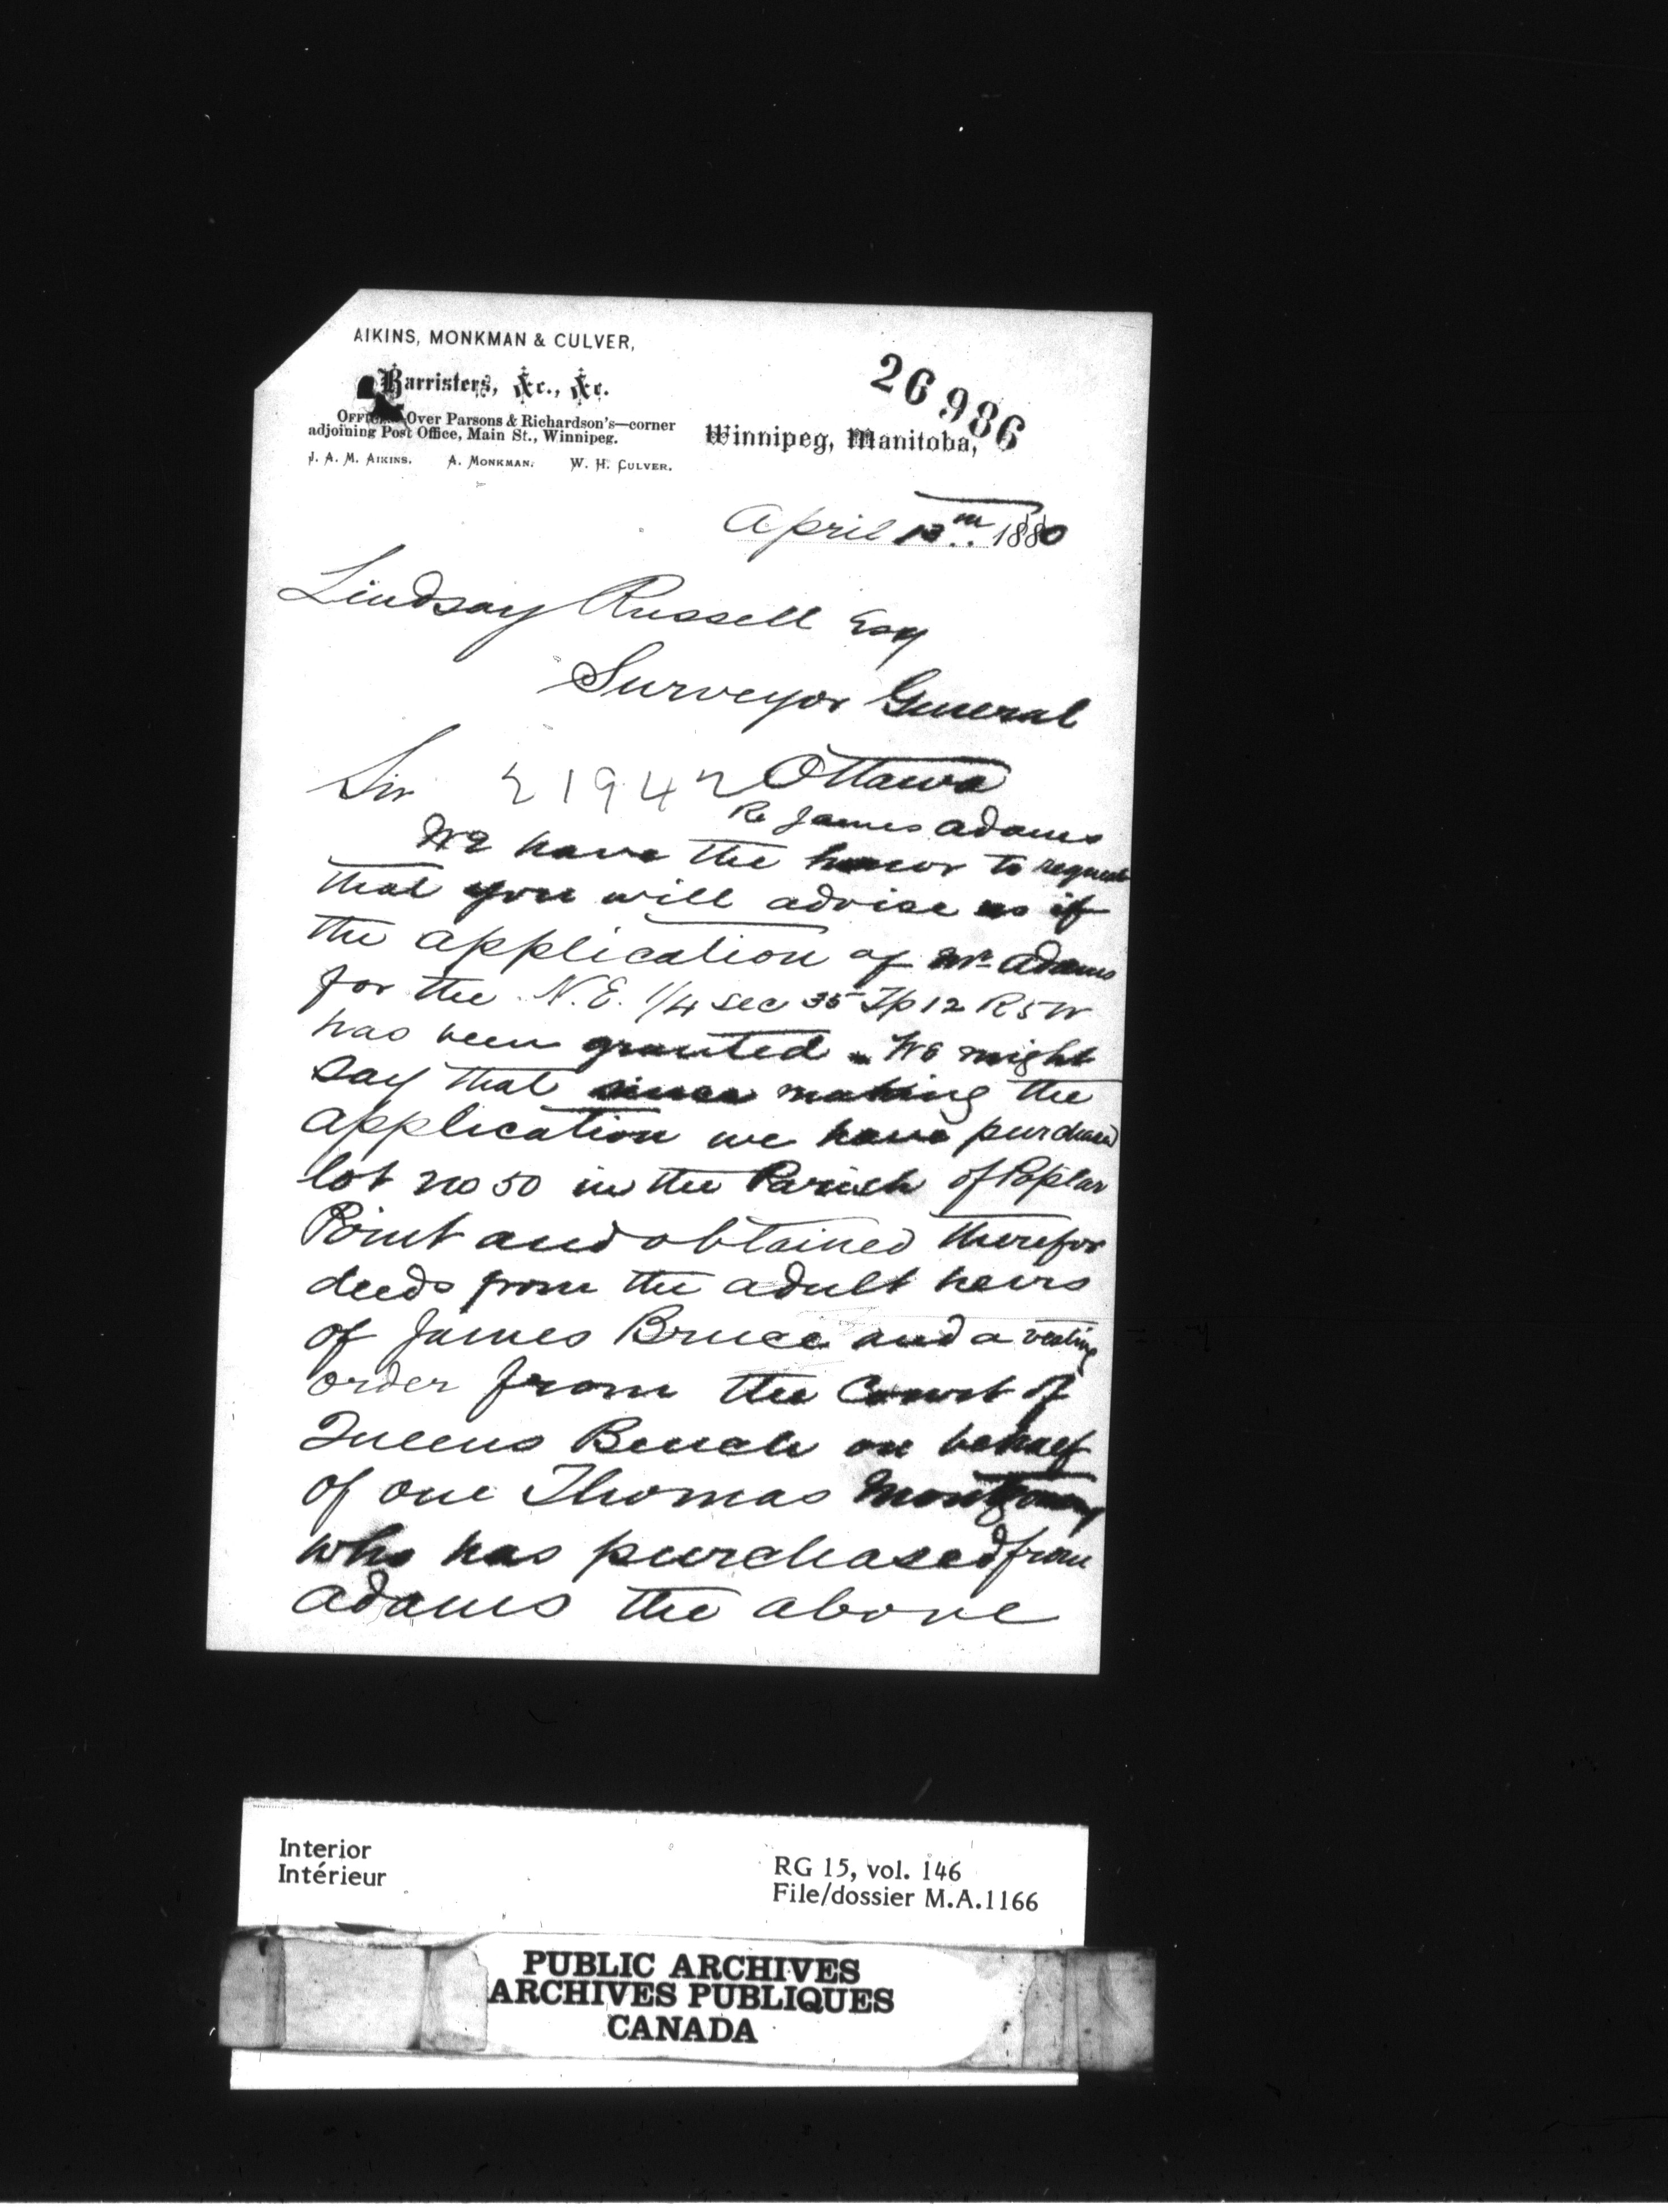 AIKINS, MONKMAN & CULVER,
Barristers, &c., &c.
Over Parsons & Richardson's—corner
adjoining Post Office, Main St., Winnipeg.
J. A. M. AIKINS. A. MONKMAN. W. H. CULVER.
26986
Winnipeg, Manitoba,
April 13th 1880
Lindsay Russell Esq
Surveyor General
Ottawa
Sir 21942
Re James Adams
We have the honor to request
that you will advise us if
the application of Mr Adams
for the N.E. 1/4 sec 35 Tp 12 R 5 W
has been granted. We might
say that since making the
application we have purchased
lot no 50 in the Parish of Poplar
Point and obtained therefor
deeds from the adult heirs
of James Bruce and a vesting
order from the Court of
Queens Bench on behalf
of one Thomas Montgomery
who has purchased from
Adams the above
Interior
Intérieur
RG 15, vol. 146
File/dossier M.A.1166
PUBLIC ARCHIVES
ARCHIVES PUBLIQUES
CANADA